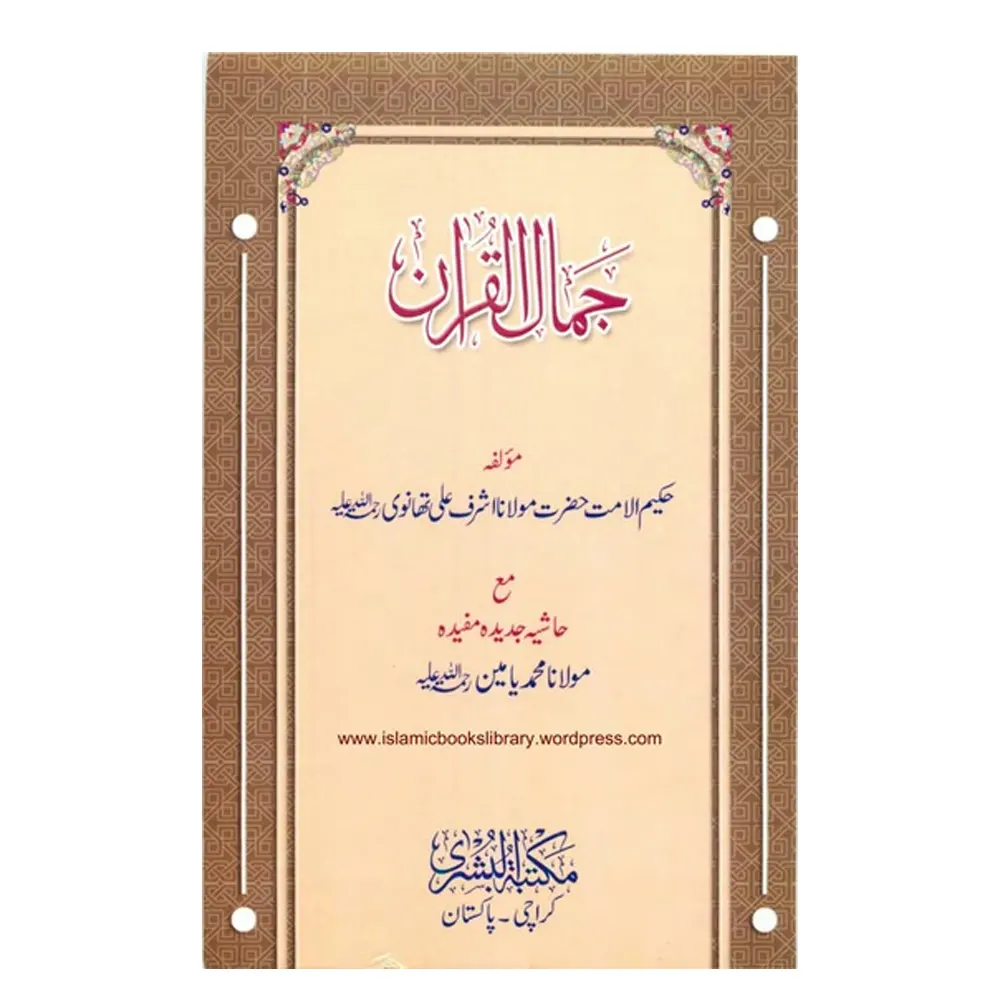 جمال القرآن
مؤلفہ
حکیم الامت حضرت مولانا اشرف علی تھانوی رحمۃ اللہ علیہ
مع
حاشیہ جدیدہ مفیدہ
مولانا محمد یامین رحمۃ اللہ علیہ
www.islamicbookslibrary.wordpress.com
مکتبۃ البشری
کراچی - پاکستان